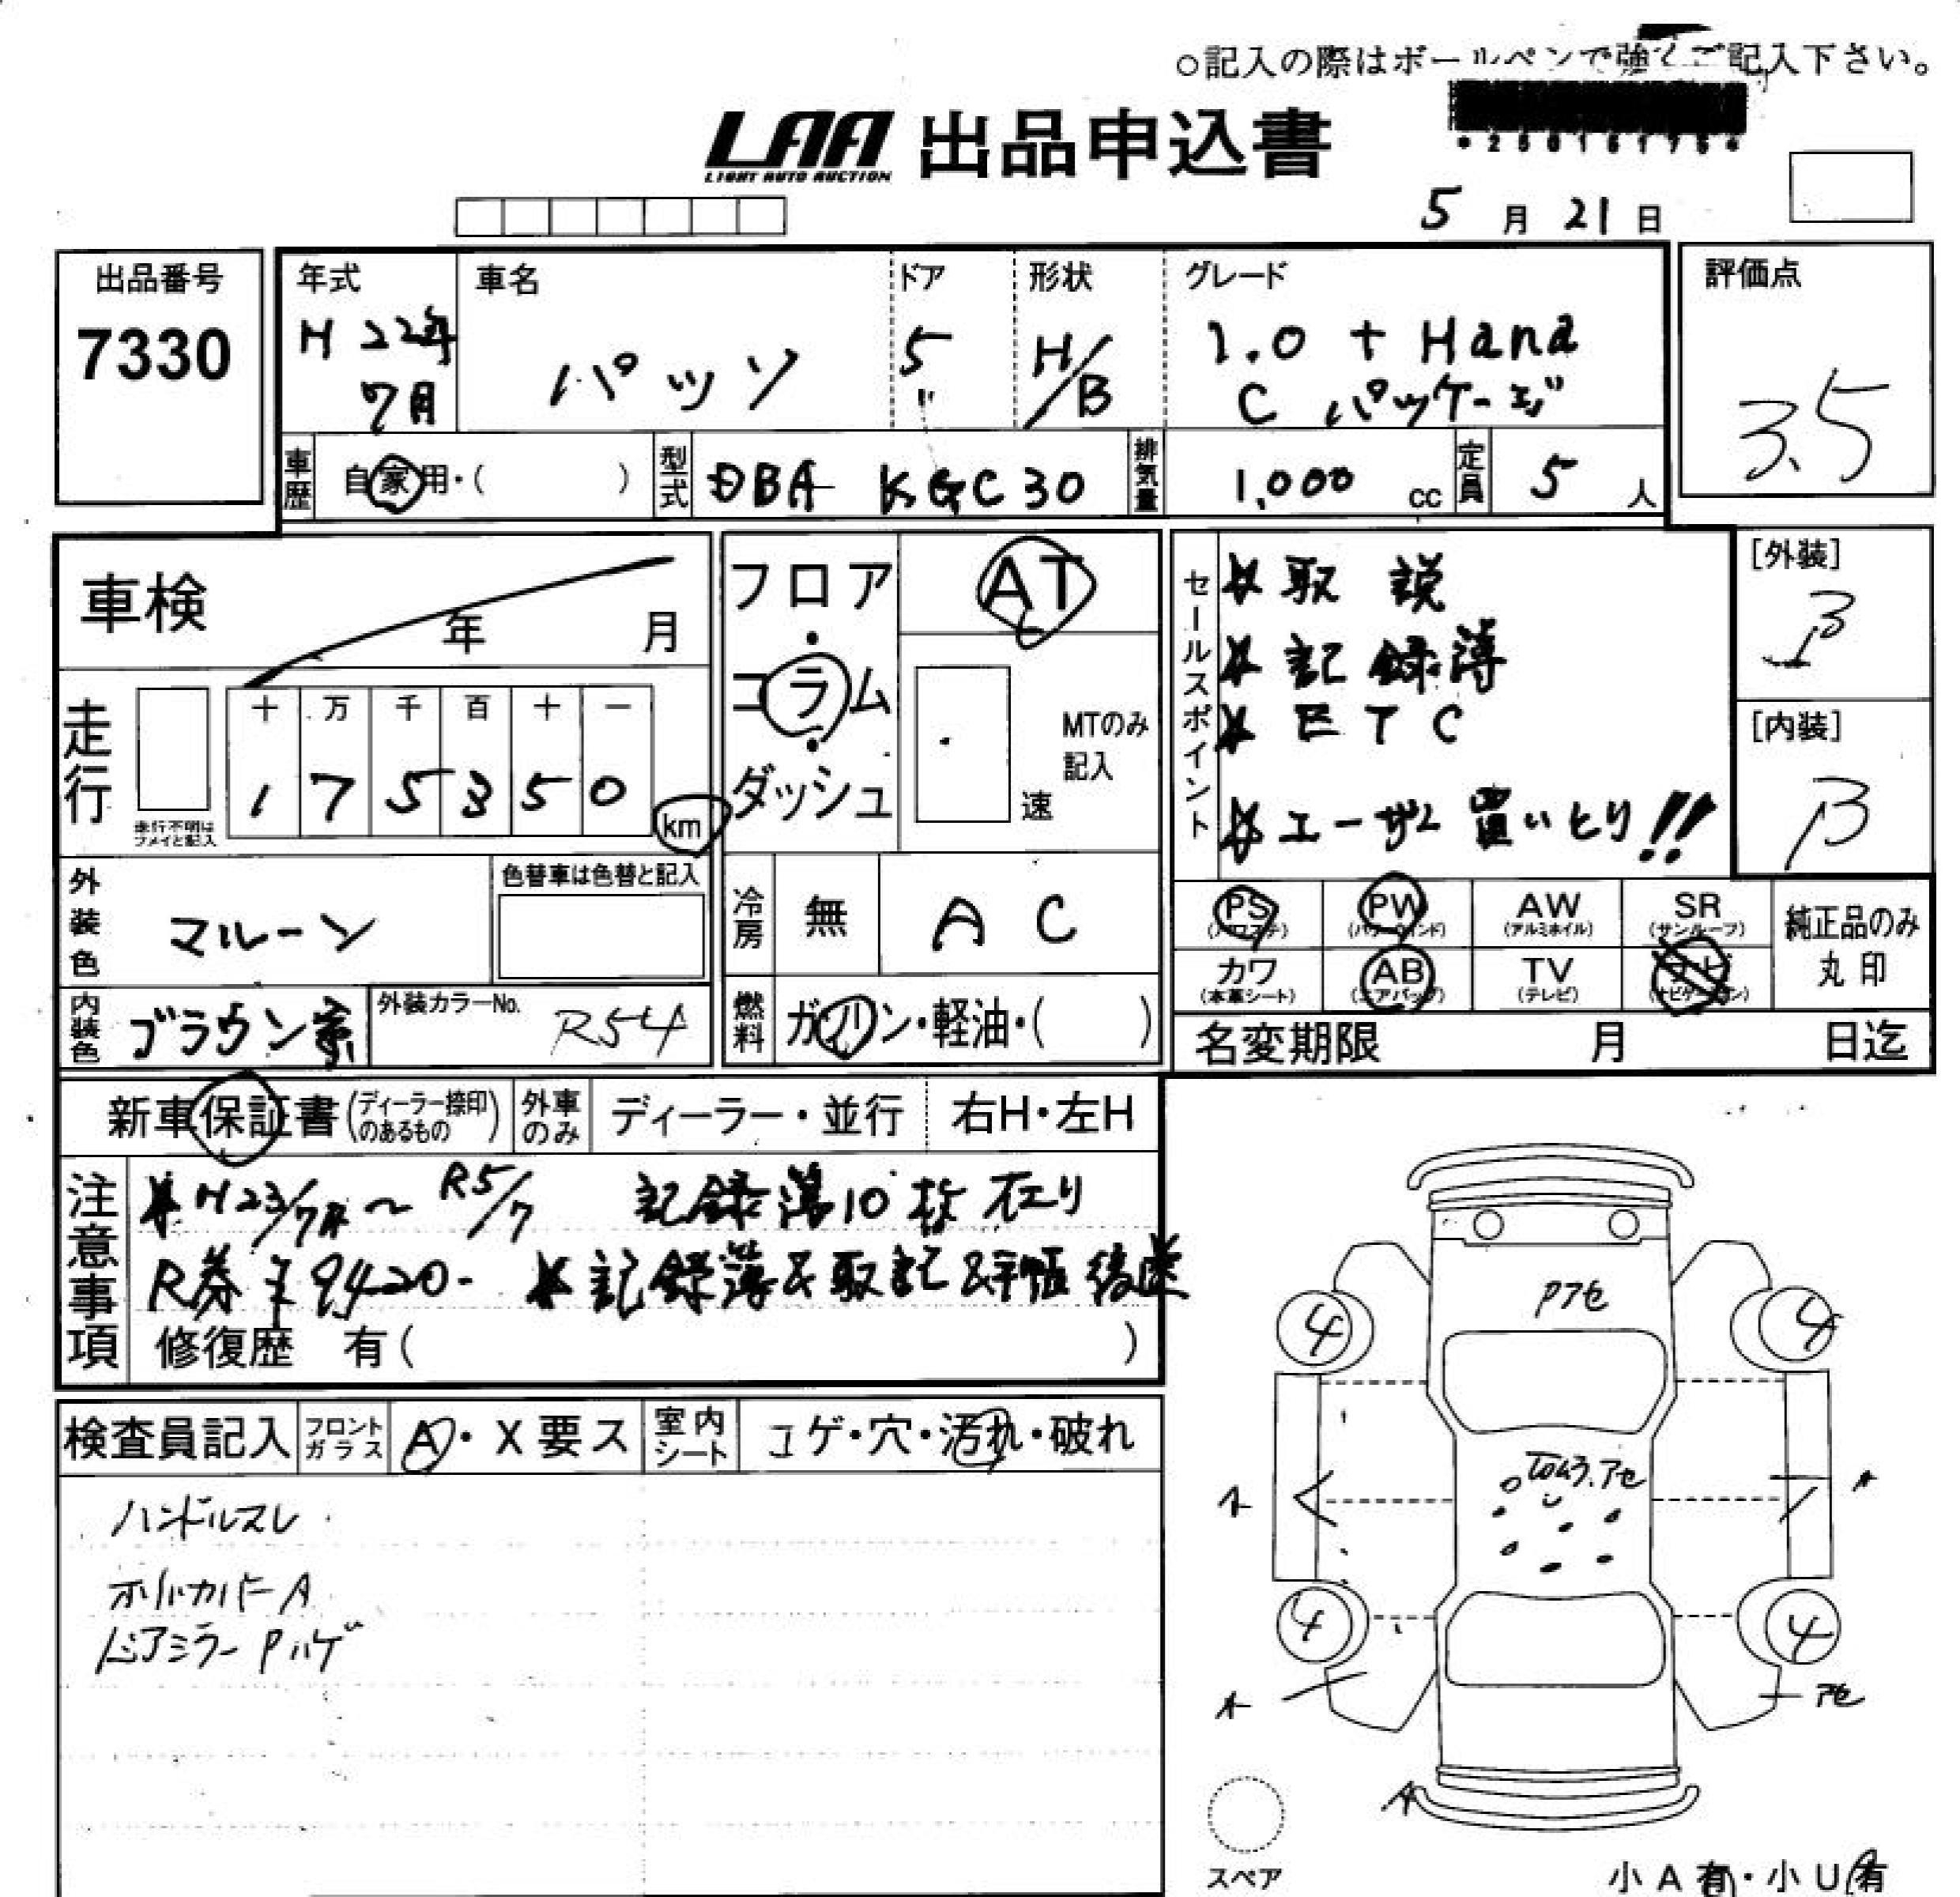 ○記入の際はボールペンで強くご記入下さい。
LAA 出品申込書
LIGHT AUTO AUCTION
5月21日
出品番号
7330
年式
H22年
7月
車名
パッソ
ドア
5
〃
形状
H/B
グレード
1.0 + Hana
C パッケージ
評価点
3.5
車歴 自家用・( )
型式 DBA KGC30
排気量 1,000 cc
定員 5 人
車検 年 月
走行
十 万 千 百 十 一
1 7 5 3 5 0 km
走行不明は
フメイと記入
外装色 マルーン
色替車は色替と記入
内装色 ブラウン系
外装カラーNo. R54
フロア・コラム・ダッシュ
AT
MTのみ
記入
速
冷房 無 AC
燃料 ガソリン・軽油・( )
セールスポイント
取説
記録簿
ETC
ユーザー買いとり!!
[外装]
B
[内装]
B
PS (パワステ) PW (パワーウインド) AW (アルミホイル) SR (サンルーフ)
カワ (本革シート) AB (エアバッグ) TV (テレビ) ナビ (ナビゲーション)
純正品のみ
丸印
名変期限 月 日迄
新車保証書 (ディーラー捺印のあるもの)
外車のみ ディーラー・並行 右H・左H
注意事項
H23/7月～R5/7 記録簿10枚在り
R券 ¥9420-
修復歴 有( )
検査員記入
フロントガラス A・X要ス
室内シート コゲ・穴・汚れ・破れ
ハンドルスレ
ドアミラーPハゲ
Pアセ
4 4
A A
4 4
A アセ
A
スペア
小A有・小U有